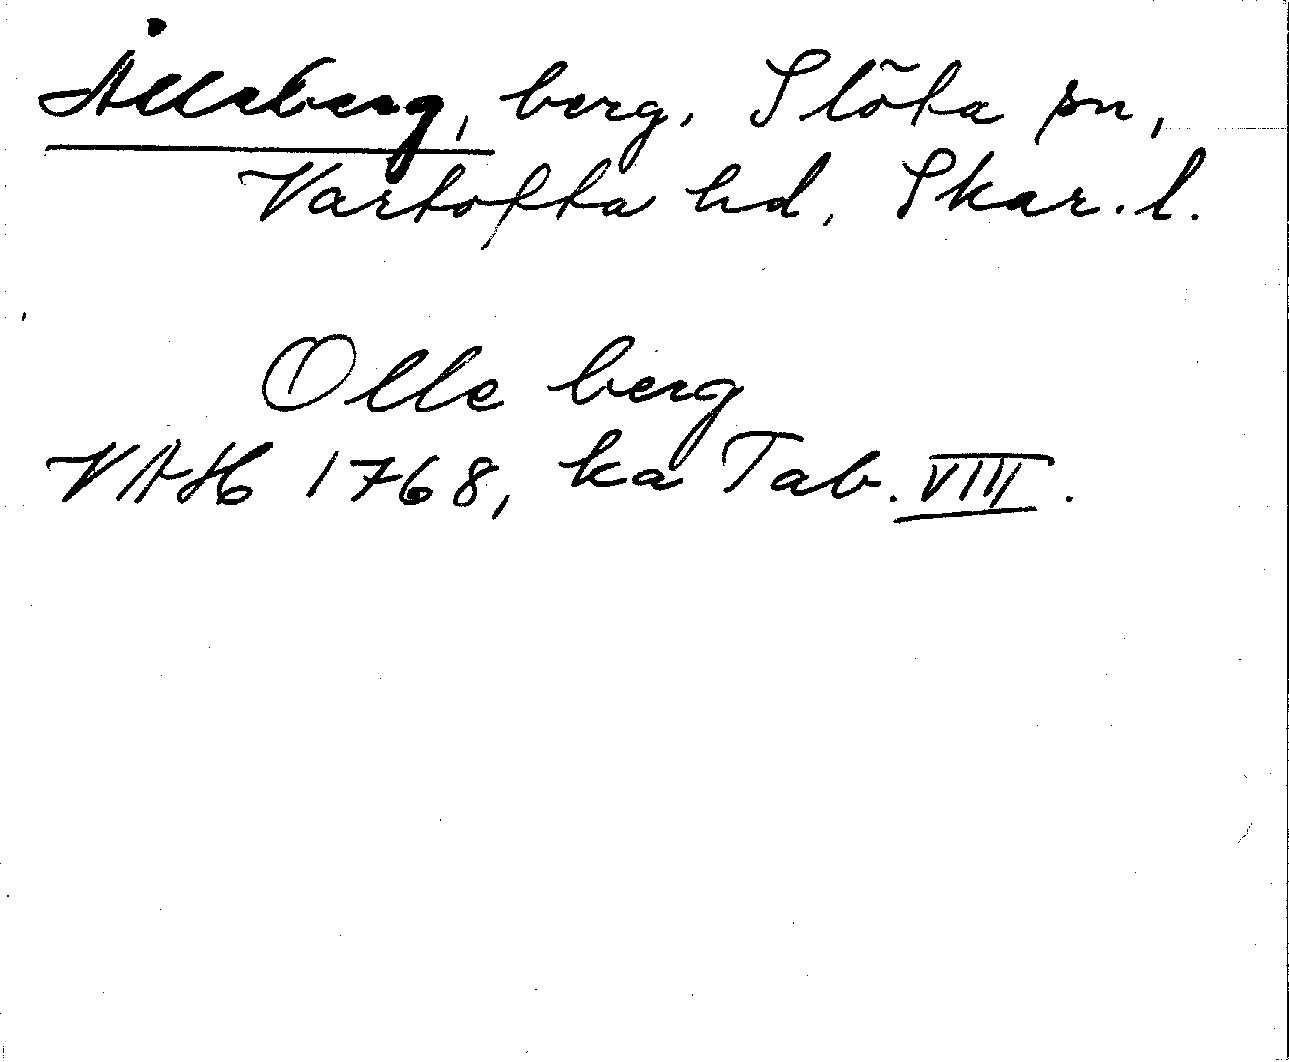 Ålleberg, berg, Slöta sn,
Vartofta hd, Skar. l.
Olle berg
VAH 1768, ka Tab. VIII.